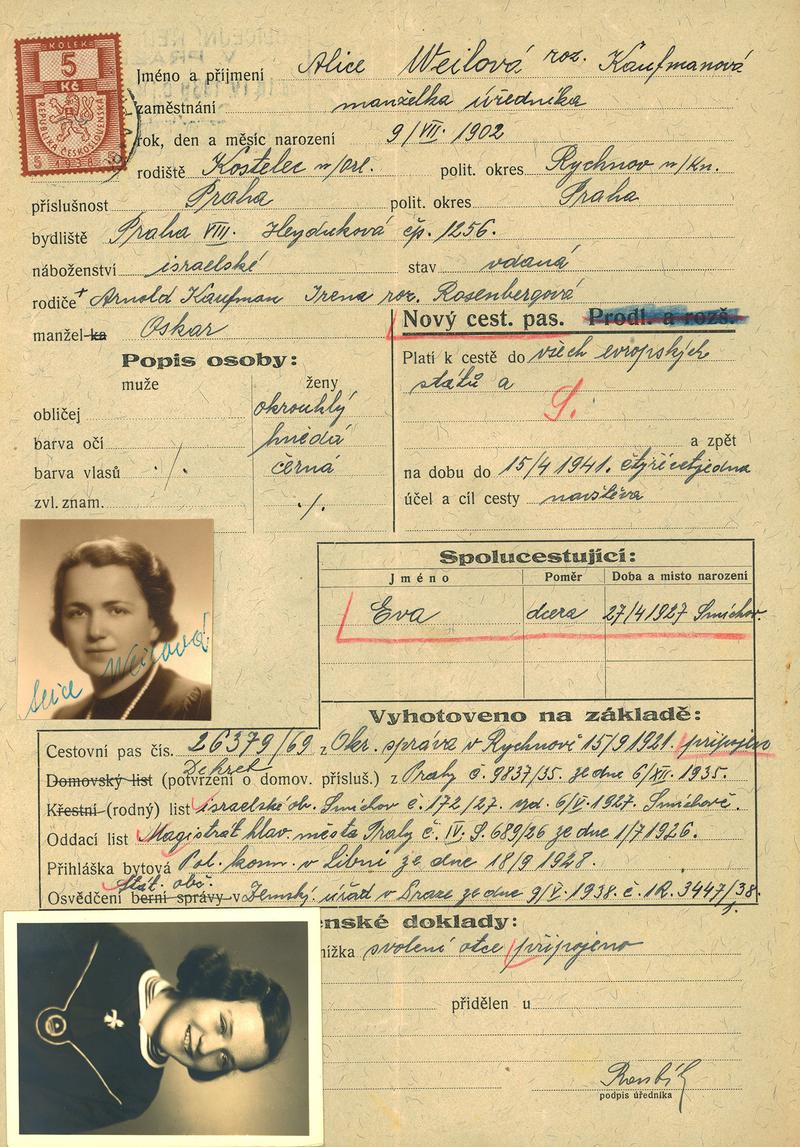 KOLEK
5
Kč
REPUBLIKA ČESKOSLOVENSKÁ
5 1938 5
Jméno a příjmení Alice Weilová roz. Kaufmanová
zaměstnání manželka úředníka
rok, den a měsíc narození 9/VII. 1902
rodiště Kostelec n/Orl. polit. okres Rychnov n/Kn.
příslušnost Praha polit. okres Praha
bydliště Praha VIII. Heyduková čp. 1256.
náboženství israelské stav vdaná
rodiče Arnold Kaufman Irena roz. Rosenbergová
manžel-ka Oskar
Nový cest. pas. Prodl. a rozš.
Popis osoby:
muže ženy
obličej okrouhlý
barva očí hnědá
barva vlasů ./. černá
zvl. znam. ./.
Platí k cestě do všech evropských
států a
S.
a zpět
na dobu do 15/4 1941. čtyřicetjedna
účel a cíl cesty navštěva
Alice Weilová
Spolucestující:
Jméno Poměr Doba a misto narození
Eva dcera 27/4 1927 Smíchov.
Vyhotoveno na základě:
Cestovní pas čís. 26379/69 z Okr. správa v Rychnově 15/9 1921. připojeno
Dekret
Domovský list (potvrzení o domov. přísluš.) z Prahy č. 9837/35. ze dne 6/XII. 1935.
Křestní (rodný) list israelské ob. Smíchov č. 172/27. vyd. 6/V. 1927. Smíchově.
Oddací list Magistrát hlav. města Prahy č. IV. S. 689/26 ze dne 1/7 1926.
Přihláška bytová Pol. kom. v Libni ze dne 18/9 1928.
stát. obč.
Osvědčení berní správy v Zemský úřad v Praze ze dne 9/V. 1938. č. 1R. 3447/38.
enské doklady:
nížka svolení otce připojeno
přidělen u
podpis úředníka